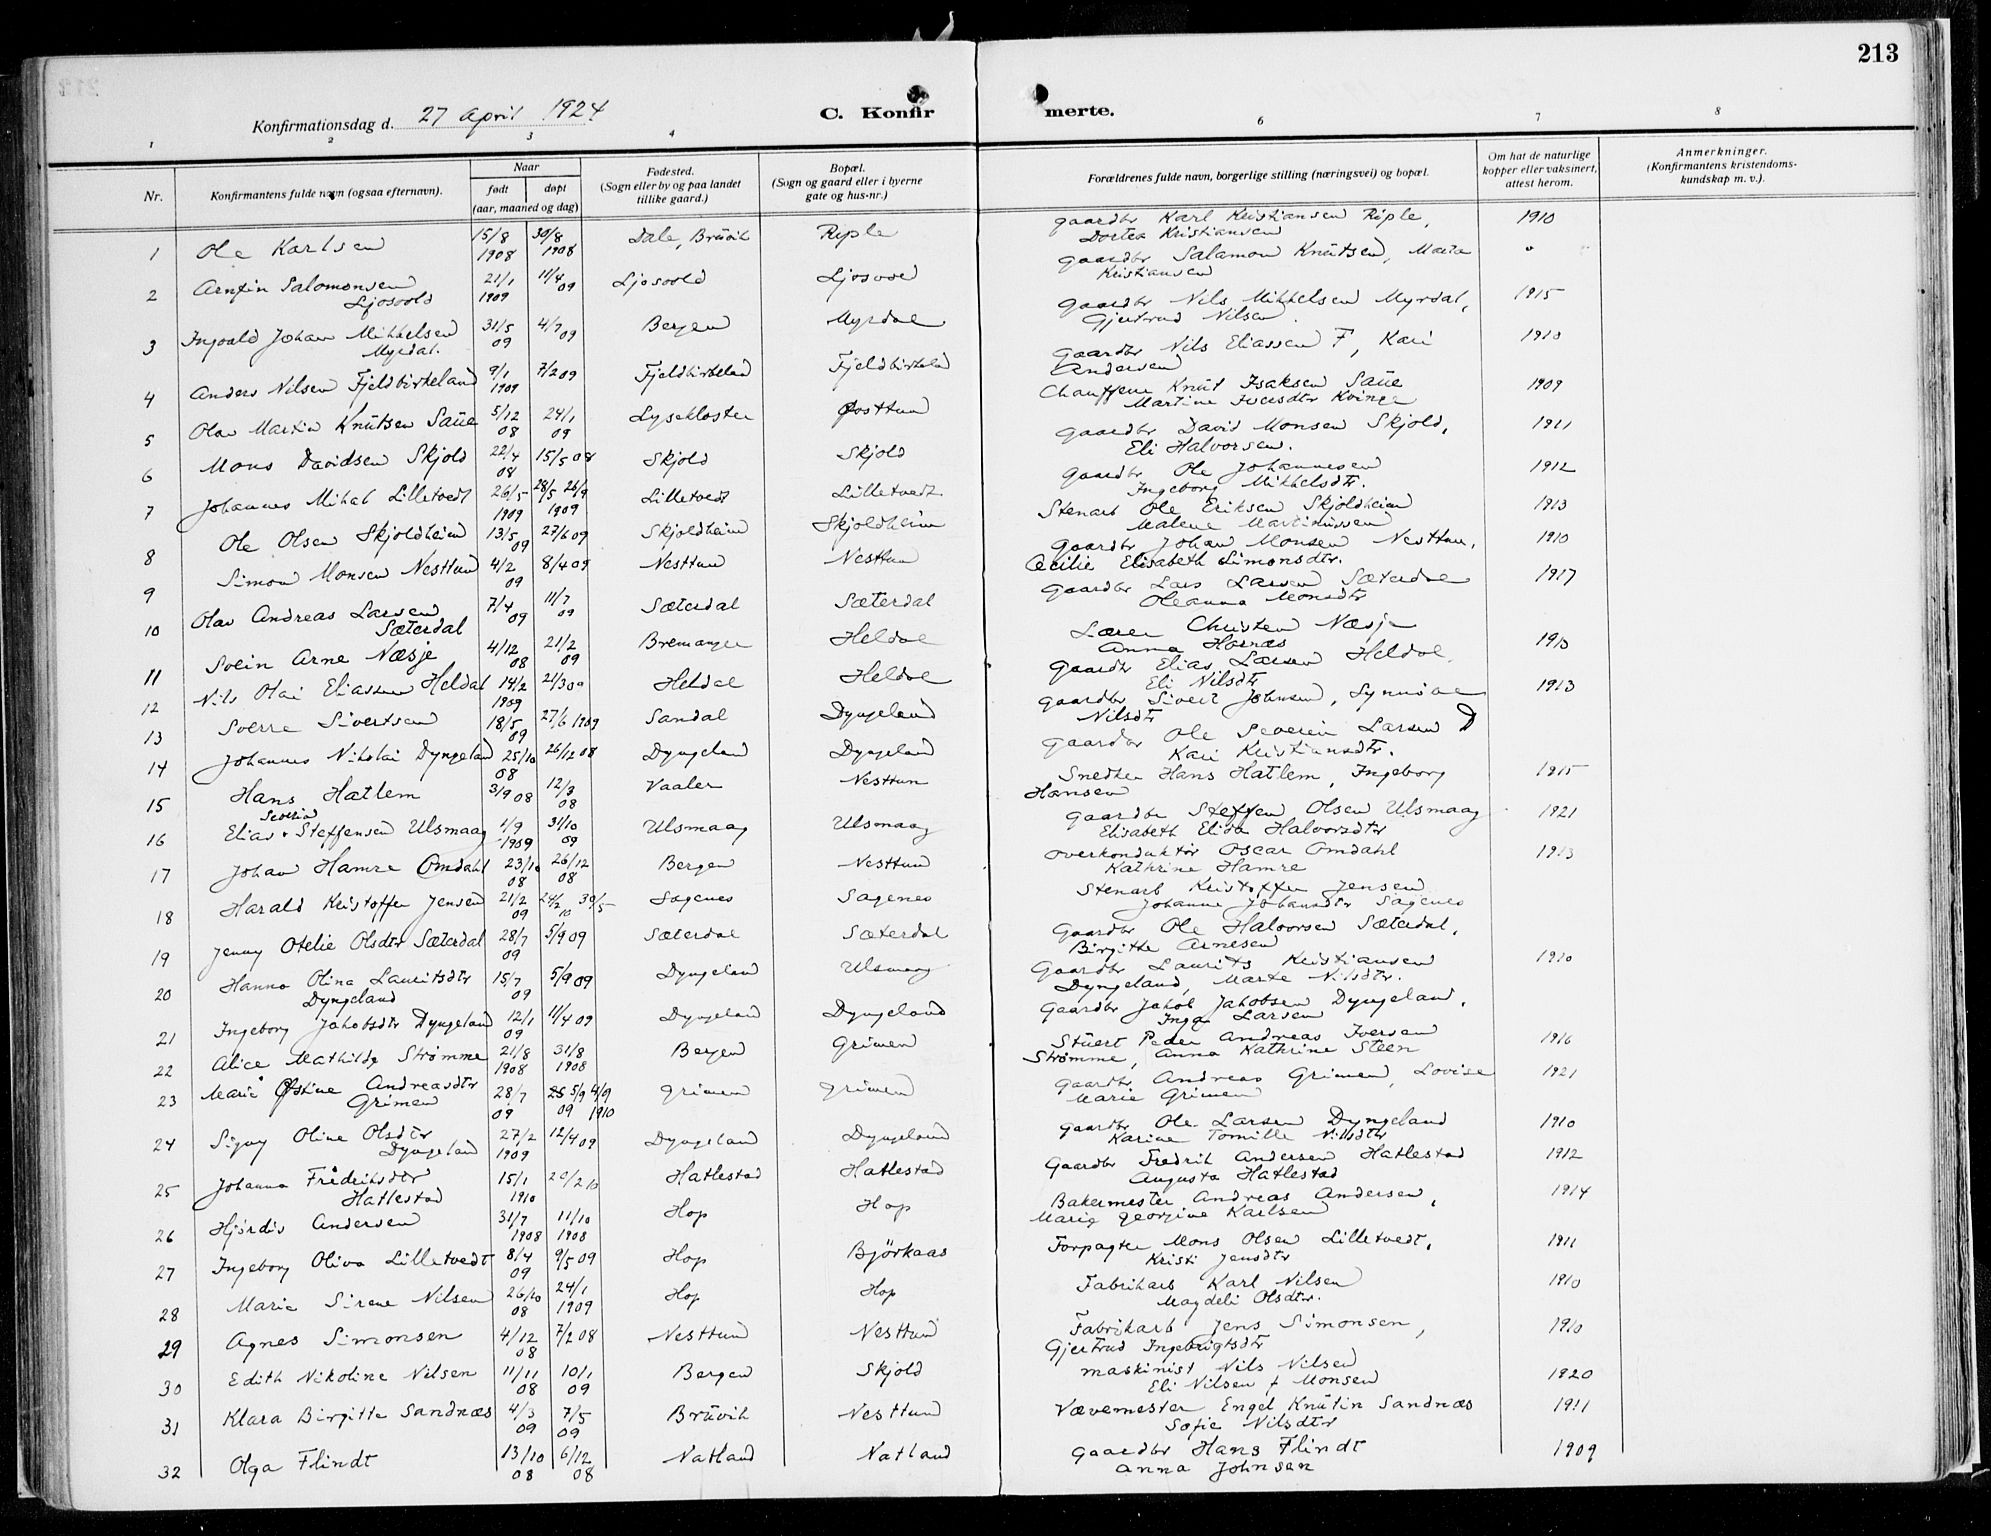 213
Konfirmationsdag d. 27 april 1924
C. Konfir merte.
1 2 3 4 6 7 8
Nr.
Konfirmantens fulde navn (ogsaa efternavn).
Naar
født døpt
(aar, maaned og dag)
Fødested.
(Sogn eller by og paa landet
tillike gaard.)
Bopæl.
(Sogn og gaard eller i byerne
gate og hus-nr.)
Forældrenes fulde navn, borgerlige stilling (næringsvei) og bopæl.
Om hat de naturlige
kopper eller vaksinert,
attest herom.
Anmerkninger.
(Konfirmantens kristendoms-
kundskap m. v.).
1 Ole Karlsen 15/8 1908 30/8 1908 Dale, Brüvik Riple Gaardbr Karl Kristiansen Riple, 1910
Dortea Kristiansen
2 Arnfin Salomonsen 21/1 1909 11/4 09 Ljosvold Ljosvol Gaardbr Salamon Knütsen, Maria "
Ljosvold Kristiansen
3 Ingvald Johan Mikkelsen 31/5 09 4/7 09 Bergen Myrdal Gaardbr Nils Mikkelsen Myrdal, 1915
Myrdal. Gjertrud Nilsen
4 Anders Nilsen Fjeldbirkeland 9/1 1909 7/2 09 Fjeldbirkeland Fjeldbirkeland Gaardbr Nils Eliassen F, Kari 1910
Andersen
5 Olav Martin Knütsen Saüe 5/12 08 24/1 09 Lysekloster Østtun Chauffeur Knüt Isaksen Saüe 1909
Martine Iversdtr Kvinge
6 Mons Davidsen Skjold 22/4 08 15/5 08 Skjold Skjold Gaardbr David Monsen Skjold, 1911
Eli Halvorsen.
7 Johannes Mikal Lilletvedt 26/5 1909 28/5 26/9 1909 Lilletvedt Lilletvedt Gaardbr Ole Johannesen 1912
Ingeborg Mikkelsdtr.
8 Ole Olsen Skjoldheim 13/5 09 27/6 09 Skjoldheim Skjoldheim Stenarb Ole Eriksen Skjoldheim 1913
Malene Martinüssen
9 Simon Monsen Nesttun 4/2 09 8/4 09 Nesttun Nesttun Gaardbr Johan Monsen Nesttun, 1910
Cecilie Elisabeth Simonsdtr.
10 Olav Andreas Larsen 7/4 09 11/7 09 Sæterdal Sæterdal Gaardbr Lars Larsen Sæterdal 1917
Sæterdal Oleanna Monsdtr
11 Svein Arne Næsje 4/12 08 21/2 09 Bremanger Heldal Lærer Christen Næsje
Anna Hornæs 1910
12 Nils Olai Eliassen Heldal 14/2 1909 21/3 09 Heldal Heldal Gaardbr Elias Larsen Heldal
Eli Nilsdtr 1913
13 Sverre Sivertsen 18/5 09 27/6 1909 Sandal Dyngeland Gaardbr Sivert Johnsen, Synnøve
Nilsdtr
14 Johannes Nikolai Dyngeland 25/10 08 26/12 08 Dyngeland Dyngeland Gaardbr Ole Severin Larsen D
Kari Kristiansdtr.
15 Hans Hatlem 3/9 08 12/3 08 Vaaler Nesttun Snedker Hans Hatlem, Ingeborg 1915
Hansen
Severin
16 Elias Steffensen Ulsmaag 1/9 1909 31/10 09 Ulsmaag Ulsmaag Gaardbr Steffen Olsen Ulsmaag 1921
Elisabeth Elisa Halvorsdtr
17 Johan Hamre Omdahl 23/10 08 26/12 08 Bergen Nesttun Overkonduktør Oscar Omdahl 1913
Kathrine Hamre
18 Harald Kristoffer Jensen 21/2 09 24/2 10 30/5 Sagenes Sagenes Stenarb Kristoffer Jensen
Johanne Johansdtr Sagenes
19 Jenny Otelie Olsdtr Sæterdal 28/7 09 5/9 09 Sæterdal Sæterdal Gaardbr Ole Halvorsen Sæterdal,
Birgitte Arnesen
20 Hanna Olina Lauritsdtr 15/7 09 5/9 09 Dyngeland Ulsmaag Gaardbr Laurits Kristiansen 1910
Dyngeland Dyngeland, Marte Nilsdtr.
21 Ingeborg Jakobsdtr Dyngeland 12/1 09 11/4 09 Dyngeland Dyngeland Gaardbr Jakob Jakobsen Dyngeland,
Inga Larsen
22 Alice Mathilde Strømme 21/8 1908 31/8 1908 Bergen Grimen Stüert Peder Andreas Iversen 1916
Strømme, Anna Kathrine Steen
23 Marie Østine Andreasdtr 28/7 09 5/9 09 4/9 1910 Grimen Grimen Gaardbr Andreas Grimen, Lovise 1921
Grimen Marie Grimen
24 Signy Oline Olsdtr 27/2 1909 12/4 09 Dyngeland Dyngeland Gaardbr Ole Larsen Dyngeland 1910
Dyngeland Karine Tomille Nilsdtr
25 Johanna Fredriksdtr 15/1 1910 20/2 10 Hatlestad Hatlestad Gaardbr Fredrik Andersen Hatlestad 1912
Hatlestad Augusta Hatlestad
26 Hjørdis Andersen 31/7 1908 11/10 1908 Hop Hop Bakermester Andreas Andersen, 1914
Marie Georgine Karlsen
27 Ingeborg Oliva Lilletvedt 8/4 09 9/5 09 Hop Björkaas Forpagter Mons Olsen Lilletvedt, 1911
Kristi Jensdtr
28 Marie Sirene Nilsen 26/10 08 24/1 1909 Hop Hop Fabrikarb Karl Nilsen 1910
Magdeli Olsdtr.
29 Agnes Simonsen 4/12 08 7/2 08 Nesttun Nesttun Fabrikarb Jens Simonsen, 1910
Gjertrud Ingebrigtsdtr
30 Edith Nikoline Nilsen 11/11 08 10/1 09 Bergen Skjold maskinist Nils Nilsen
Eli Nilsen f Monsen 1920
31 Klara Birgitte Sandnæs 4/3 09 7/5 09 Brüvik Nesttun Vævemester Engel Knütin Sandnæs 1911
Sofie Nilsdtr
32 Olga Flindt 13/10 08 6/12 08 Natland Natland Gaardbr Hans Flindt 1909
Anna Johnsen